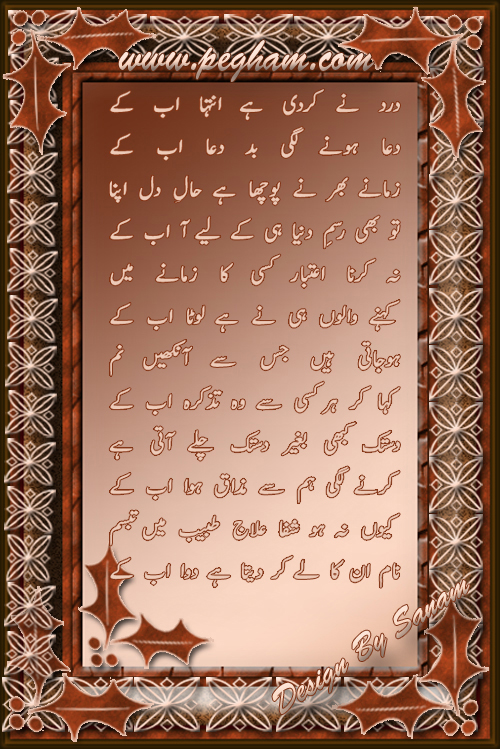 www.pegham.com
درد نے کردی ہے انتہا اب کے
دعا ہونے لگی بد دعا اب کے
زمانے بھر نے پوچھا ہے حالِ دل اپنا
تو بھی رسمِ دنیا ہی کے لیے آ اب کے
نہ کرنا اعتبار کسی کا زمانے میں
کہنے والوں ہی نے ہے لوٹا اب کے
ہوجاتی ہیں جس سے آنکھیں نم
کہا کر ہر کسی سے وہ تذکرہ اب کے
دستک کبھی بغیر دستک چلے آتی ہے
کرنے لگی ہم سے مذاق ہوا اب کے
کیوں نہ ہو شفا علاجِ طبیب میں تبسم
نام ان کا لے کر دیتا ہے دوا اب کے
Design By Sanam